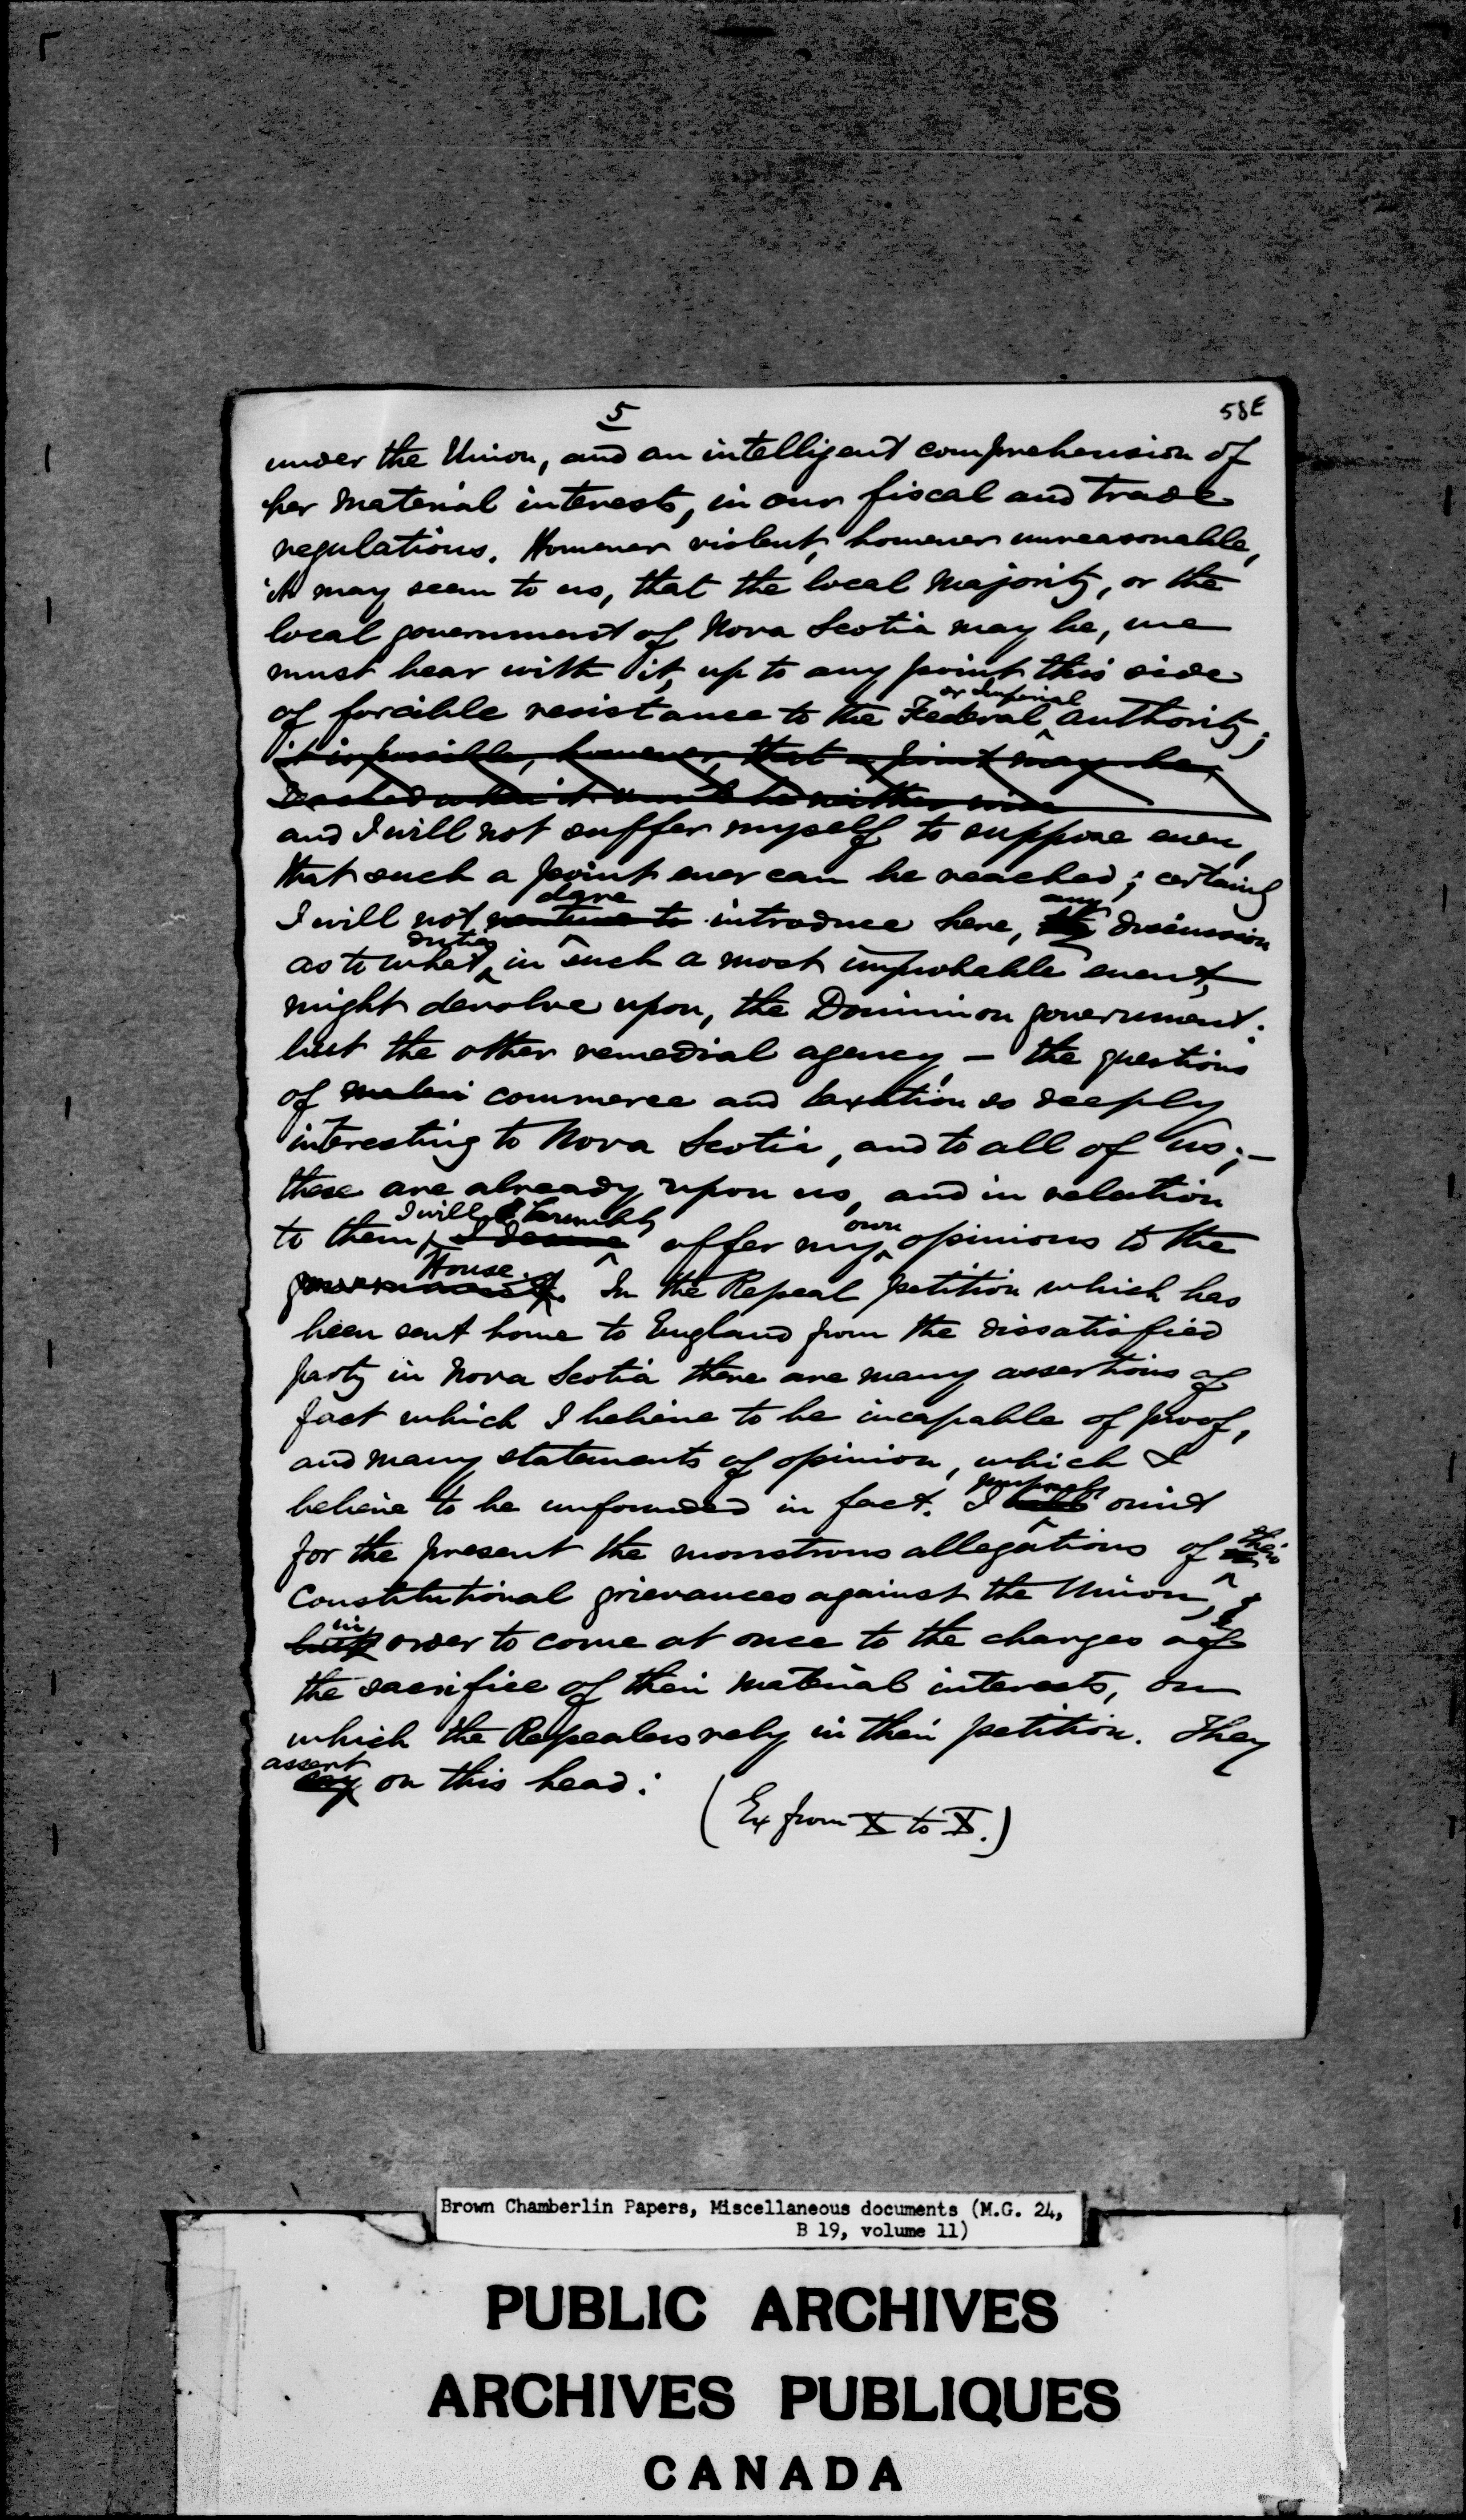 5
58E
under the Union, and an intelligent comprehension of
her material interests, in our fiscal and trade
regulations. However violent, however unreasonable,
it may seem to us, that the local majority, or the
local government of Nova Scotia may be, we
must bear with it, up to any point this side
or Imperial
of forcible resistance to the Federal authority;
it is possible, however, that a point may be,
reached when it would be neither wise
and I will not suffer myself to suppose even,
that such a point ever can be reached; certainly
dare any
I will not venture to introduce here, the discussion
duties
as to what in such a most improbable event,
might devolve upon, the Dominion government.
but the other remedial agency, – the questions
of commerce and taxation so deeply
interesting to Nova Scotia, and to all of us; –
these are already upon us, and in relation
I will humbly own
to them, I desire offer my opinions to the
House.
government. In the Repeal petition which has
been sent home to England from the dissatisfied
party in Nova Scotia there are many assertions of
fact which I believe to be incapable of proof,
and many statements of opinion, which I
purposely
believe to be unfounded in fact. I omit
their
for the present the monstrous allegations of
Constitutional grievances against the Union, &
in
but order to come at once to the charges of
the sacrifice of their material interests, on
which the Repealers rely in their petition. They
assert
say on this head:
(Ex from X to X.)
Brown Chamberlin Papers, Miscellaneous documents (M.G. 24,
B 19, volume 11)
PUBLIC ARCHIVES
ARCHIVES PUBLIQUES
CANADA